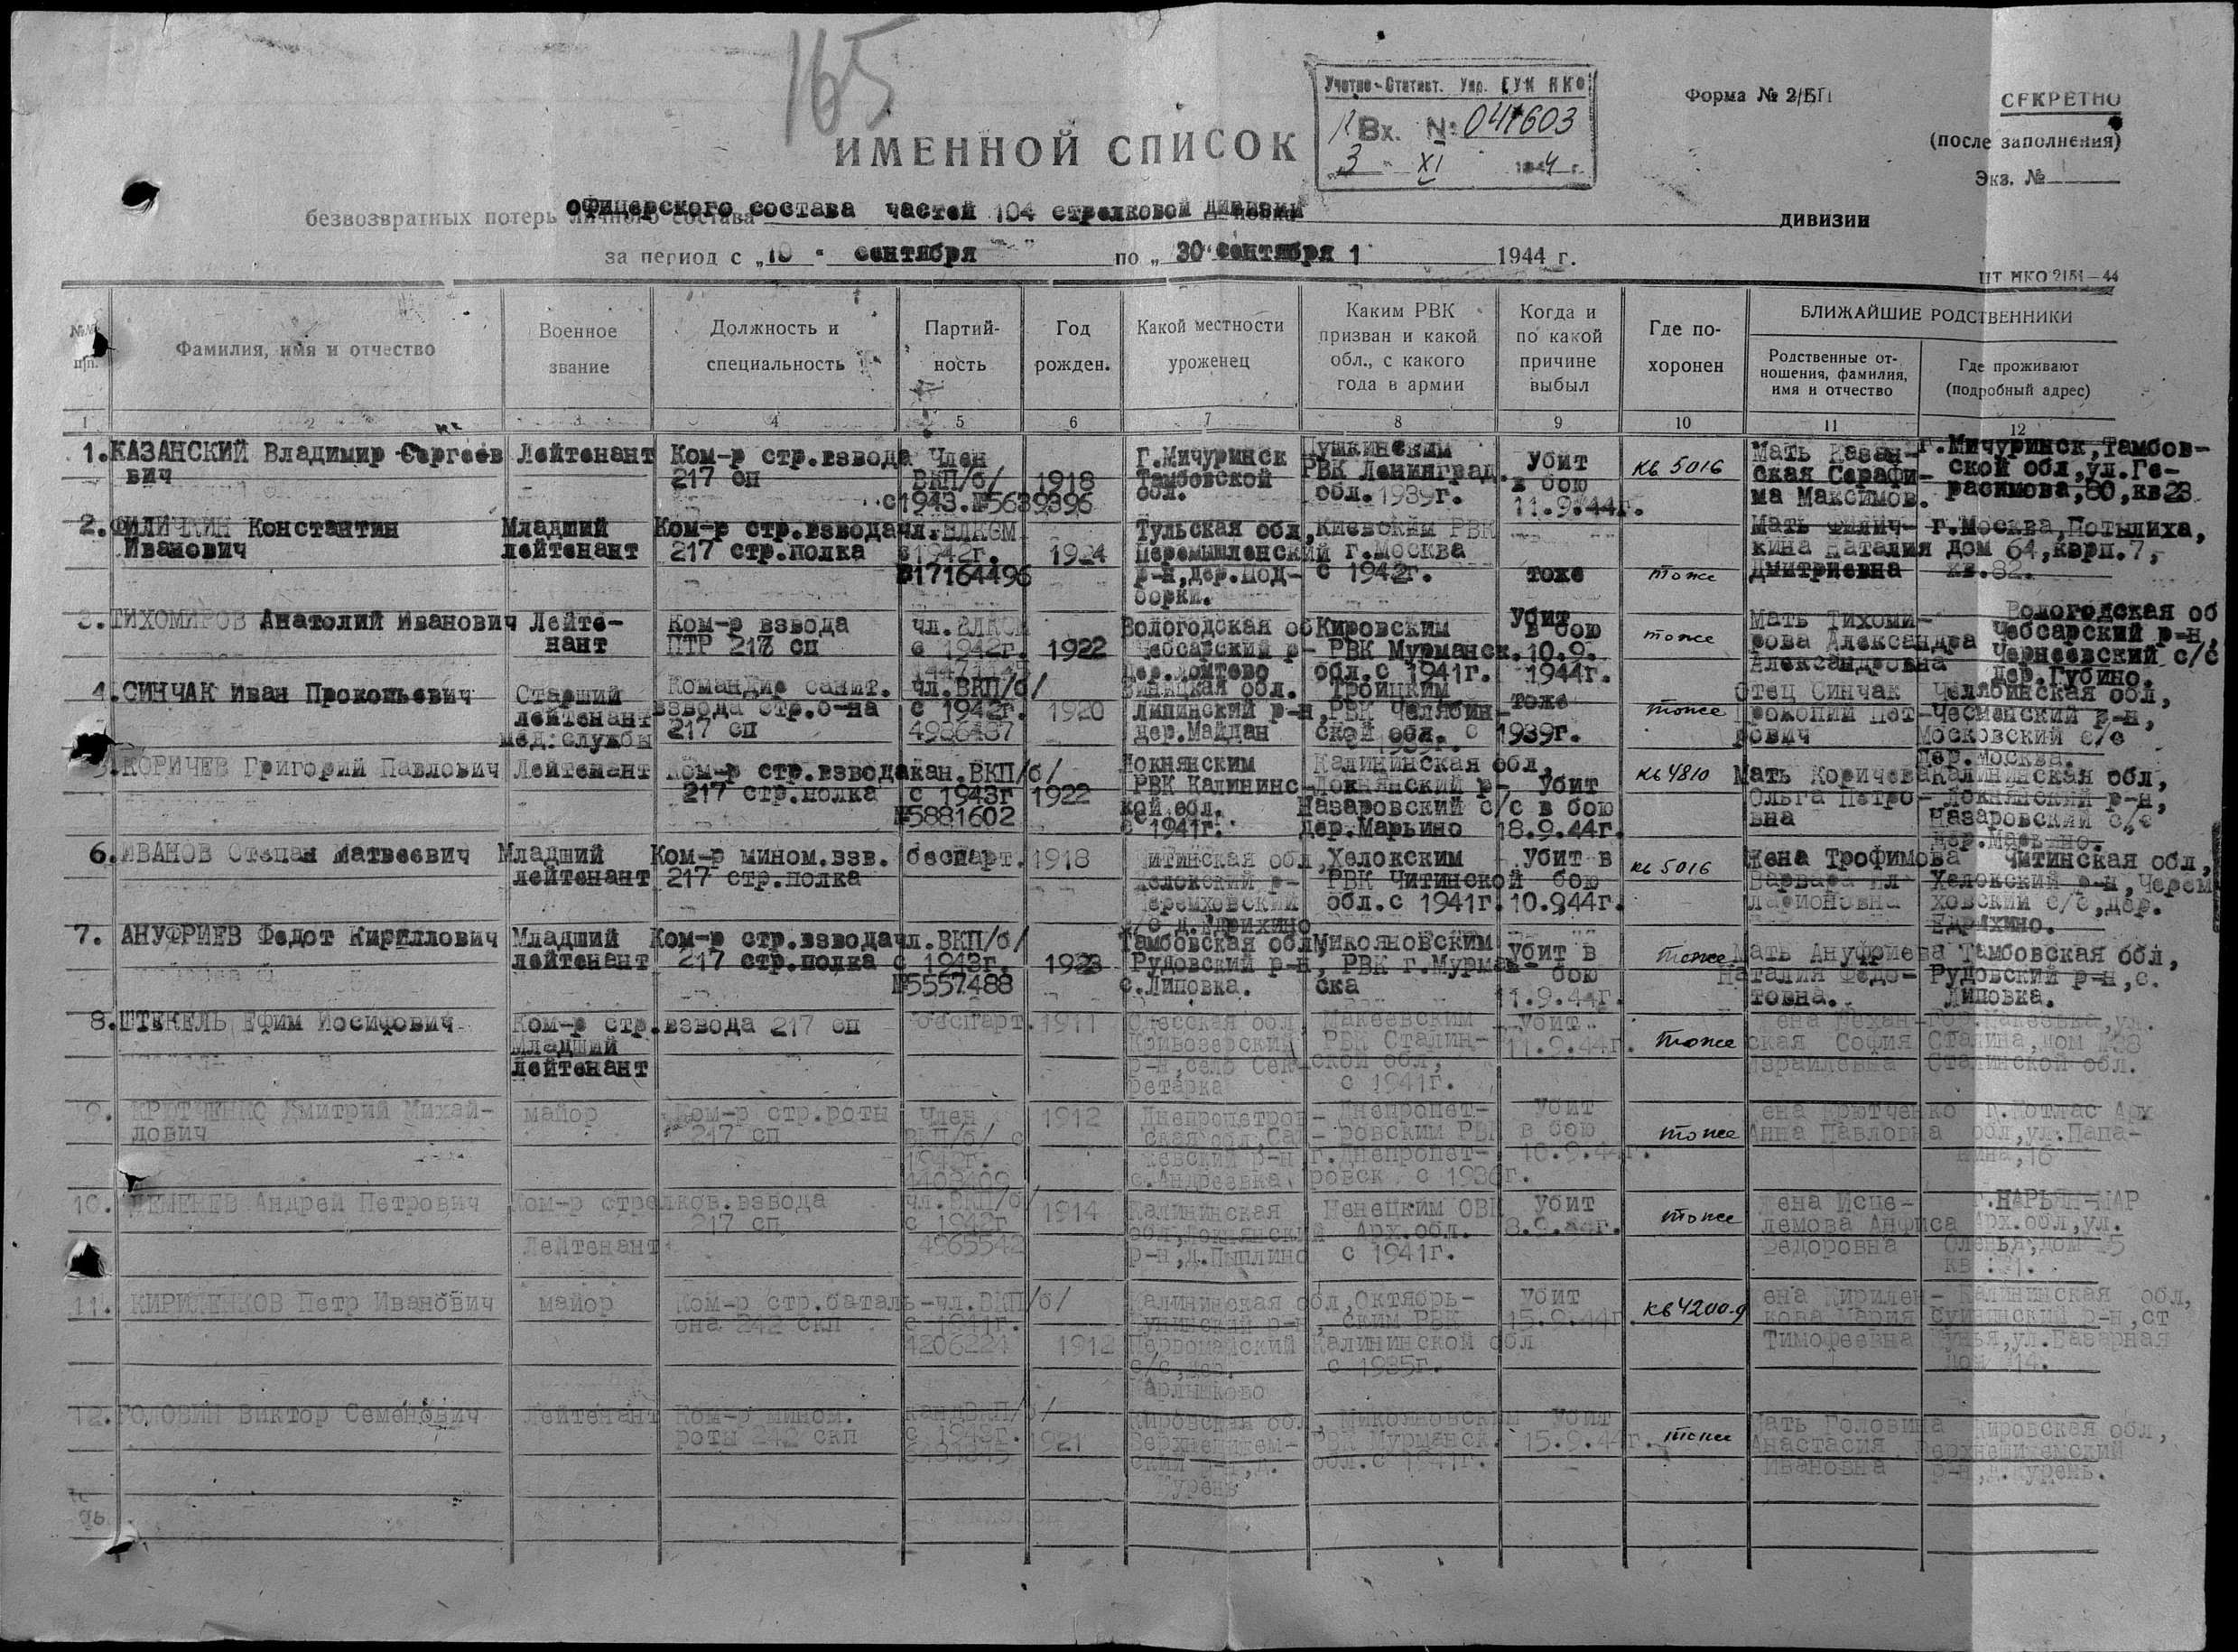 165
Учетно-Статист. Упр. ГУК НКО
Вх. № 041603
3 XI 1944 г.
Форма № 2/БП
СЕКРЕТНО
(после заполнения)
Экз. №
ИМЕННОЙ СПИСОК
безвозвратных потерь личного состава офицерского состава частей 104 стрелковой дивизии дивизии
за период с „10" сентября по „30" сентября 1 1944 г.
ЦТ НКО 2151—44
№№ п/п. Фамилия, имя и отчество Военное звание Должность и специальность Партий-ность Год рожден. Какой местности уроженец Каким РВК призван и какой обл., с какого года в армии Когда и по какой причине выбыл Где по-хоронен БЛИЖАЙШИЕ РОДСТВЕННИКИ
Родственные от-ношения, фамилия, имя и отчество Где проживают (подробный адрес)
1 2 3 4 5 6 7 8 9 10 11 12
1. КАЗАНСКИЙ Владимир Сергеев Лейтенант Ком-р стр.взвода Член Г.Мичуринск Пушкинским Убит кв 5016 Мать Казан- г.Мичуринск,Тамбов-
вич 217 сп ВКП/б/ 1918 Тамбовской РВК Ленинград. в бою ская Серафи- ской обл,ул.Ге-
с1943.№5639396 обл. обл.1939г. 11.9.44г. ма Максимов. расимова,80,кв23
2. ФИЛИЧКИН Константин Младший Ком-р стр.взвода чл.ВЛКСМ Тульская обл, Киевским РВК Мать Филич- г.Москва,Потылиха,
Иванович лейтенант 217 стр.полка в1942г. 1924 Перемышленский г.Москва кина Наталия дом 64,корп.7,
№17164496 р-н,дер.Под- с 1942г. тоже тоже Дмитриевна кв.82.
борки.
3. ТИХОМИРОВ Анатолий Иванович Лейте- Ком-р взвода чл.ВЛКСМ Вологодская об Кировским Убит тоже Мать Тихоми- Вологодская об
нант ПТР 217 сп с 1942г. 1922 Чебсарский р- РВК Мурманск. в бою 10.9. рова Александра Чебсарский р-н,
дер. обл.с 1941г. 1944г. Александровна Чернеевский с/с
дер.Губино.
4. СИНЧАК Иван Прокопьевич Старший Командир санит. чл.ВКП/б/ Виницкая обл. Троицким тоже Отец Синчак Челябинская обл,
лейтенант взвода стр.б-на с 1942г. 1920 р-н, РВК Челябин- тоже Прокопий Пет- Чесменский р-н,
мед.службы 217 сп 4986487 дер.Майдан ской обл. с 1939г. рович Московский с/с
дер.Москва.
5. КОРИЧЕВ Григорий Павлович Лейтенант Ком-р стр.взвода кан.ВКП/б/ Локнянским Калининская обл, кв 4810 Мать Коричева Калининская обл,
217 стр.полка с 1943г 1922 РВК Калининс- Локнянский р- Убит Ольга Петро- Локнянский р-н,
№5881602 кой обл. Назаровский с/с в бою вна Назаровский с/с
с 1941г. дер.Марьино 18.9.44г. дер.Марьино.
6. ИВАНОВ Степан Матвеевич Младший Ком-р мином.взв. беспарт. 1918 Читинская обл, Хелокским Убит в кв 5016 Жена Трофимова Читинская обл,
лейтенант 217 стр.полка Хелокский р- РВК Читинской бою Варвара Ил- Хелокский р-н,Черем
Черемховский обл.с 1941г. 10.9.44г. ларионовна ховский с/с,дер.
с/с д.Едрихино Едрихино.
7. АНУФРИЕВ Федот Кириллович Младший Ком-р стр.взвода чл.ВКП/б/ Тамбовская обл Микояновским Убит в тоже Мать Ануфриева Тамбовская обл,
лейтенант 217 стр.полка с 1943г. 1923 Рудовский р-н, РВК г.Мурман- бою Наталия Федо- Рудовский р-н,с.
№5557488 с.Липовка. ска 11.9.44г. товна. Липовка.
8. ШТЕКЕЛЬ Ефим Иосифович Ком-р стр.взвода 217 сп беспарт. 1911 Одесская обл, Макеевским Убит тоже Жена Механ- гор.Макеевка,ул.
Младший Кривозерский РВК Сталин- 11.9.44г. ская София Сталина,дом
лейтенант р-н,село Сек- ской обл, Израилевна Сталинской обл.
ретарка с 1941г.
9. КРЮТЧЕНКО Дмитрий Михай- майор Ком-р стр.роты Член 1912 Днепропетров- Днепропет- Убит тоже Жена Крютченко г.Котлас Арх
лович 217 сп ВКП/б/ с ская обл, ровским РВК в бою Анна Павловна обл,ул.Папа-
1942г. р-н г.Днепропет- 10.9.44г. нина,16
4408409 с.Андреевка ровск с 1936г.
10. Андрей Петрович Ком-р стрелков.взвода чл.ВКП/б/ 1914 Калининская Ненецким ОВК Убит тоже Жена г.НАРЬЯН-МАР
217 сп с 1942г обл, Арх.обл. 8.9.44г. Анфиса Арх.обл,ул.
Лейтенант 4965542 р-н, с 1941г. Федоровна Оленья,дом
кв
11. КИРИЛЕНКОВ Петр Иванович майор Ком-р стр.баталь- чл.ВКП/б/ Калининская обл, Октябрь- Убит кв 4200-д Жена Кирилен- Калининская обл,
она 242 скп с 1941г. р-н, ским РВК 15.9.44г. кова Мария р-н,ст
4206224 1912 Первомайский Калининской обл Тимофеевна Кунья,ул.Базарная
с/с,дер. с 1935г. дом 14.
12. ГОЛОВИН Виктор Семенович Лейтенант Ком-р мином. кандВКП/б/ Кировская обл, Микояновским Убит тоже Мать Головина Кировская обл,
роты 242 скп с 1943г. 1921 Верхнешижем- РВК Мурманск. 15.9.44г. Анастасия Верхнешижемский
ский р-н,д. обл.с 1941г. Ивановна р-н,д.Курень.
Курень